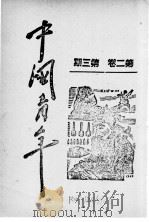 中國青年
期三第 卷二第